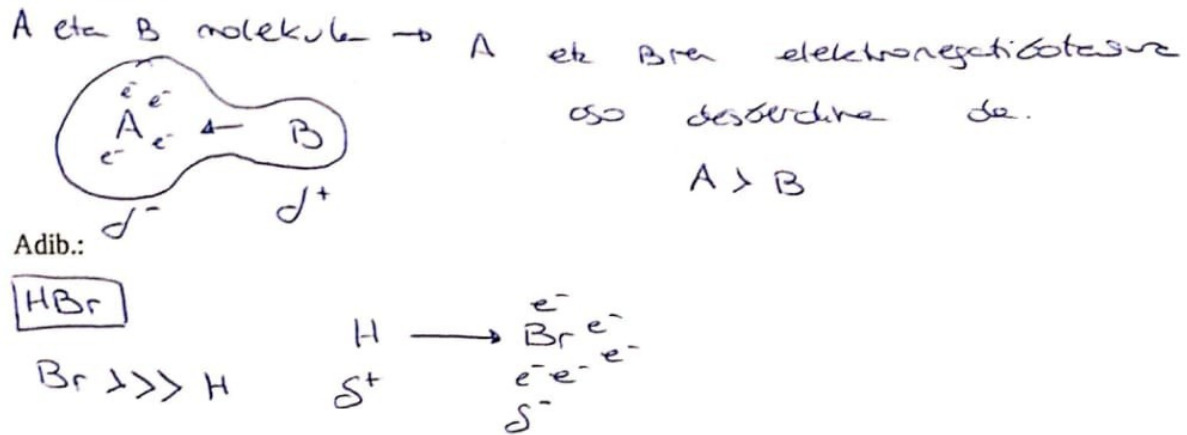 A eta B molekula → A eta Bren elektronegatibotasuna
oso desberdina da.
A > B
e⁻ e⁻
A ← B
e⁻ e⁻
δ⁻ δ⁺
Adib.:
HBr
e⁻
H → Br e⁻
e⁻
Br >>> H
e⁻ e⁻
δ⁺
δ⁻